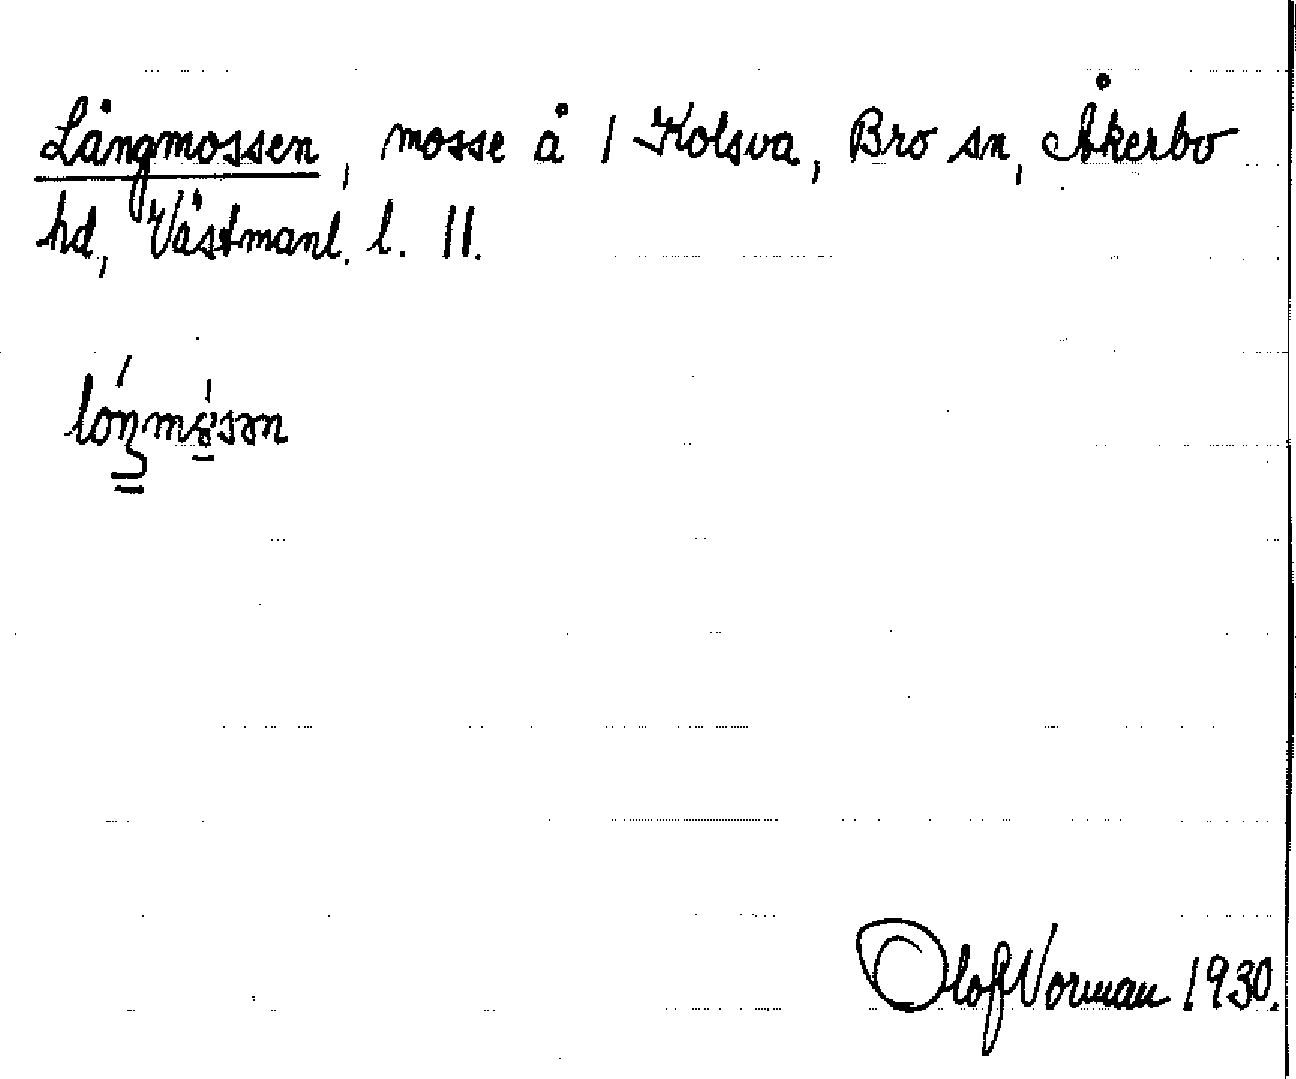 Långmossen, mosse å 1 Kolsva, Bro sn, Åkerbo
hd, Västmanl. l. 11.
Olof Vorman 1930.